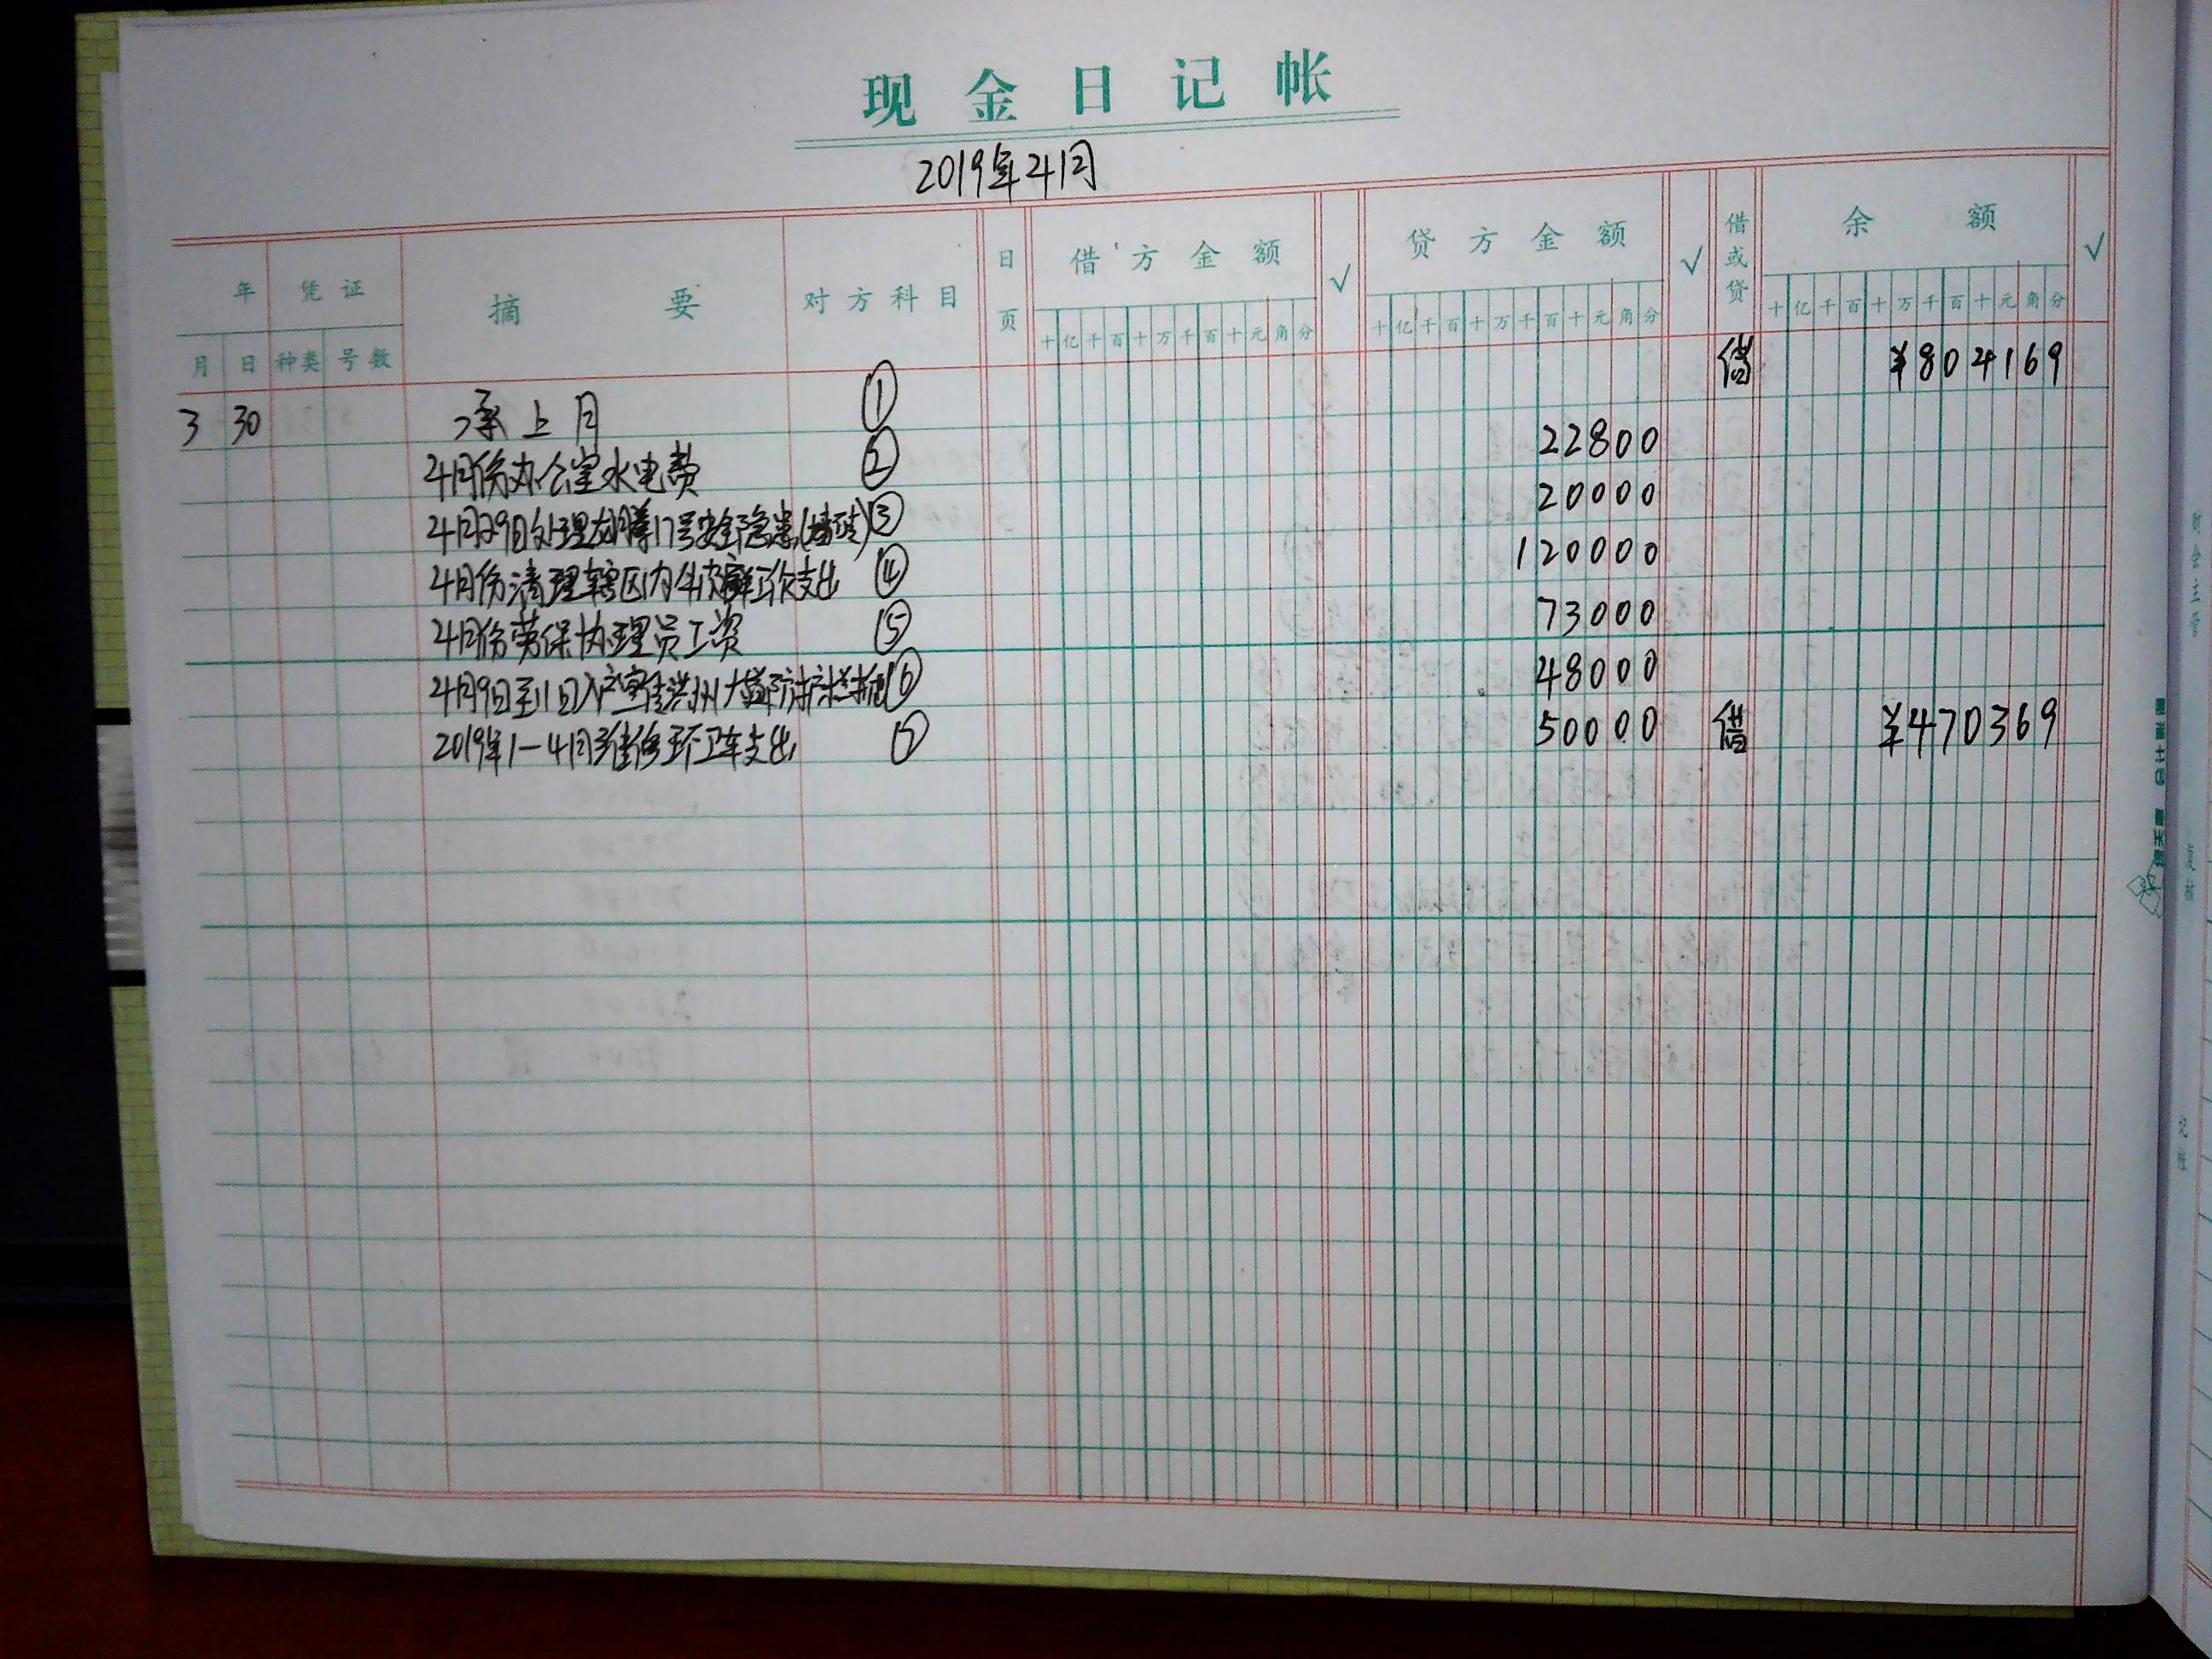 现金日记帐
2019年4月
年 凭证 摘要 对方科目 日页 借方金额 √ 贷方金额 √ 借或贷 余额 √
月 日 种类 号数 十亿千百十万千百十元角分 十亿千百十万千百十元角分 十亿千百十万千百十元角分
3 30 承上月 ① 借 ¥804169
4月份办公室水电费 ② 22800
4月29日处理龙腾17号安全隐患( ) ③ 20000
4月份清理辖区内 支出 ④ 120000
4月份劳保协理员工资 ⑤ 73000
4月9日至11日入户宣传洪州大道防护栏 ⑥ 48000
2019年1—4月维修环卫车支出 ⑦ 50000 借 ¥470369
财会主管
复核
记账